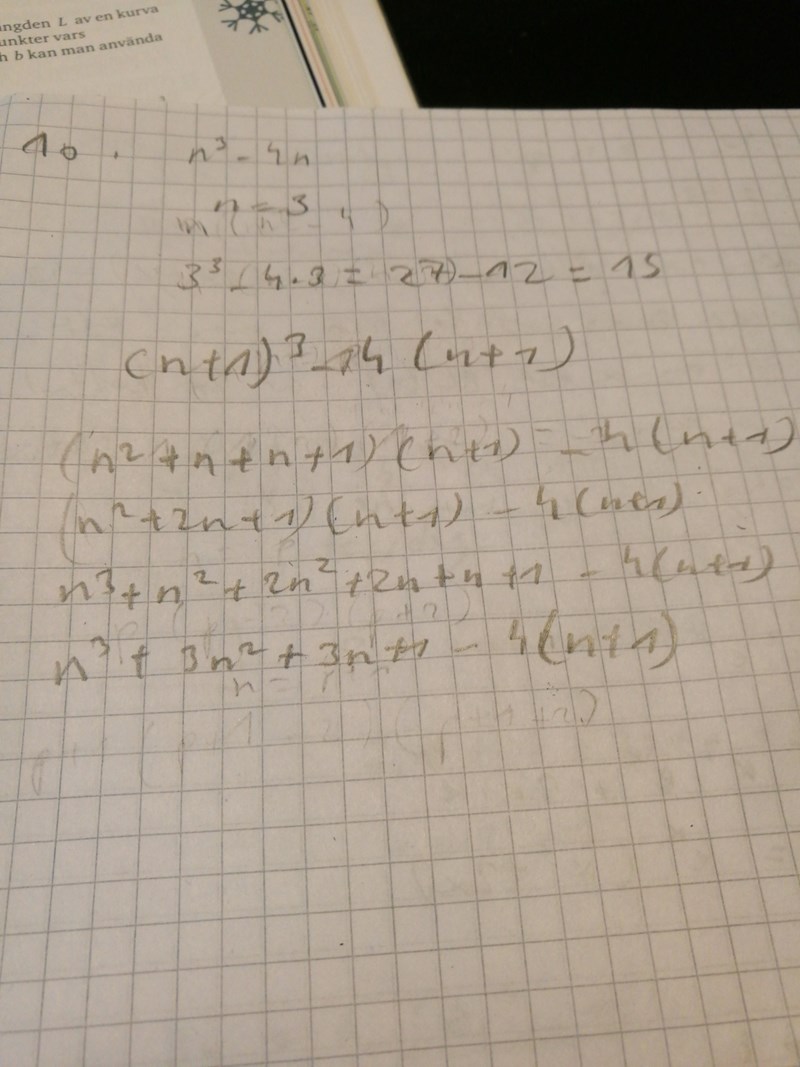 ngden L av en kurva
unkter vars
h b kan man använda
10.
n³ - 4n
n = 3
3³ - 4·3 = 27 - 12 = 15
(n+1)³ - 4(n+1)
(n² + n + n + 1)(n+1) - 4(n+1)
(n² + 2n + 1)(n+1) - 4(n+1)
n³ + n² + 2n² + 2n + n + 1 - 4(n+1)
n³ + 3n² + 3n + 1 - 4(n+1)